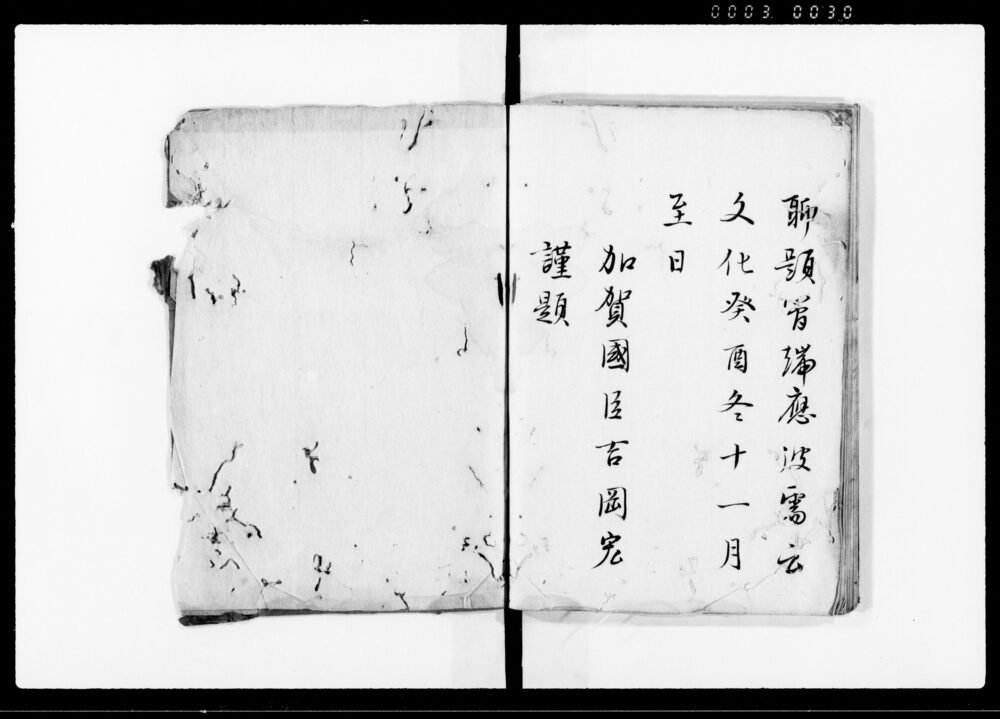 0003 0030
聊題簡端應波需云
文化癸酉冬十一月
至日
加賀國臣吉岡宏
謹題